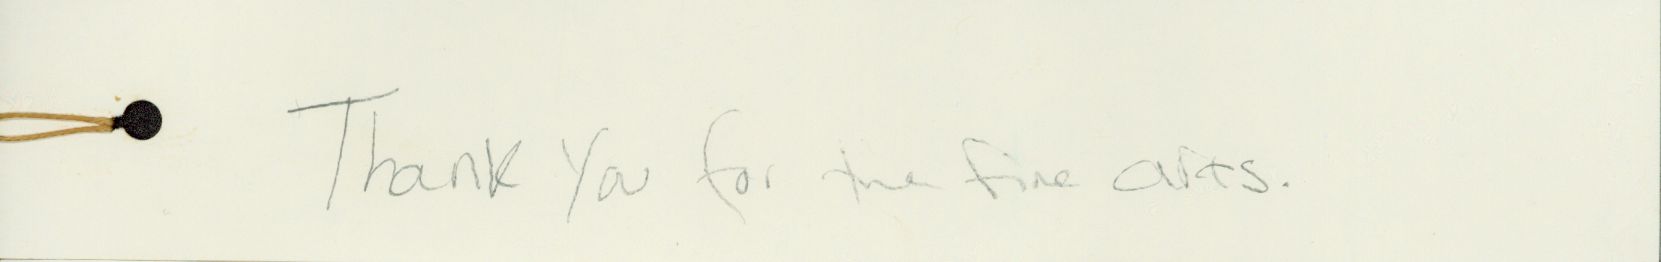 Thank You for the fine arts.